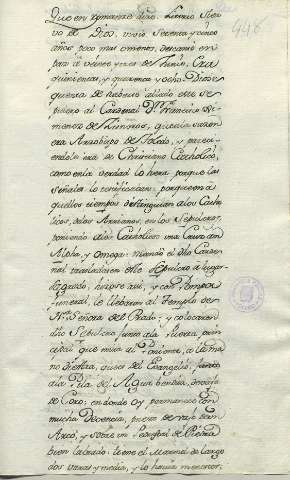 Que en romanze dize, Litorio Sier
vo de Dios, vivió Setenta y cinco
años poco mas ó menos, descansó en
paz á veinte y tres de Junio, Era
quinientas, y quarenta y ocho. Diose
quenta de haberse allado este se
pulcro al Cardenal Dn. Francisco Xi
menez de Zisneros, que á la sazon
era Arzobispo de Toledo, y parez-
iendole era de Christiano Catholico,
como en la verdad lo hera, porque las
señales lo certificaban; porque en a-
quellos tiempos distinguian á los Catho
licos, delos Arrianos, en los Sepulcros,
poniendo alos Catholicos una Cruz con
Alpha, y Omega: mandó el dho Carde
nal trasladar este Sepulcro á lugar
Sagrado, hizose asi, y con Pompa
funeral, le llebaron al Templo de
Nra. Señora del Prado; y colocaron
dho Sepulcro junto ala Puerta prin
cipal que mira al Poniente, á la ma
no derecha, del Evangelio, junto
ala Pila del Agua bendita, devajo
de Coro; en donde oy permanece con
mucha Decencia, puesto de vajo de un
Arco, y sobre un Pedestal de Piedra
bien labrado: tiene el Marmol de largo
dos varas y media, y lo havia menester,
446